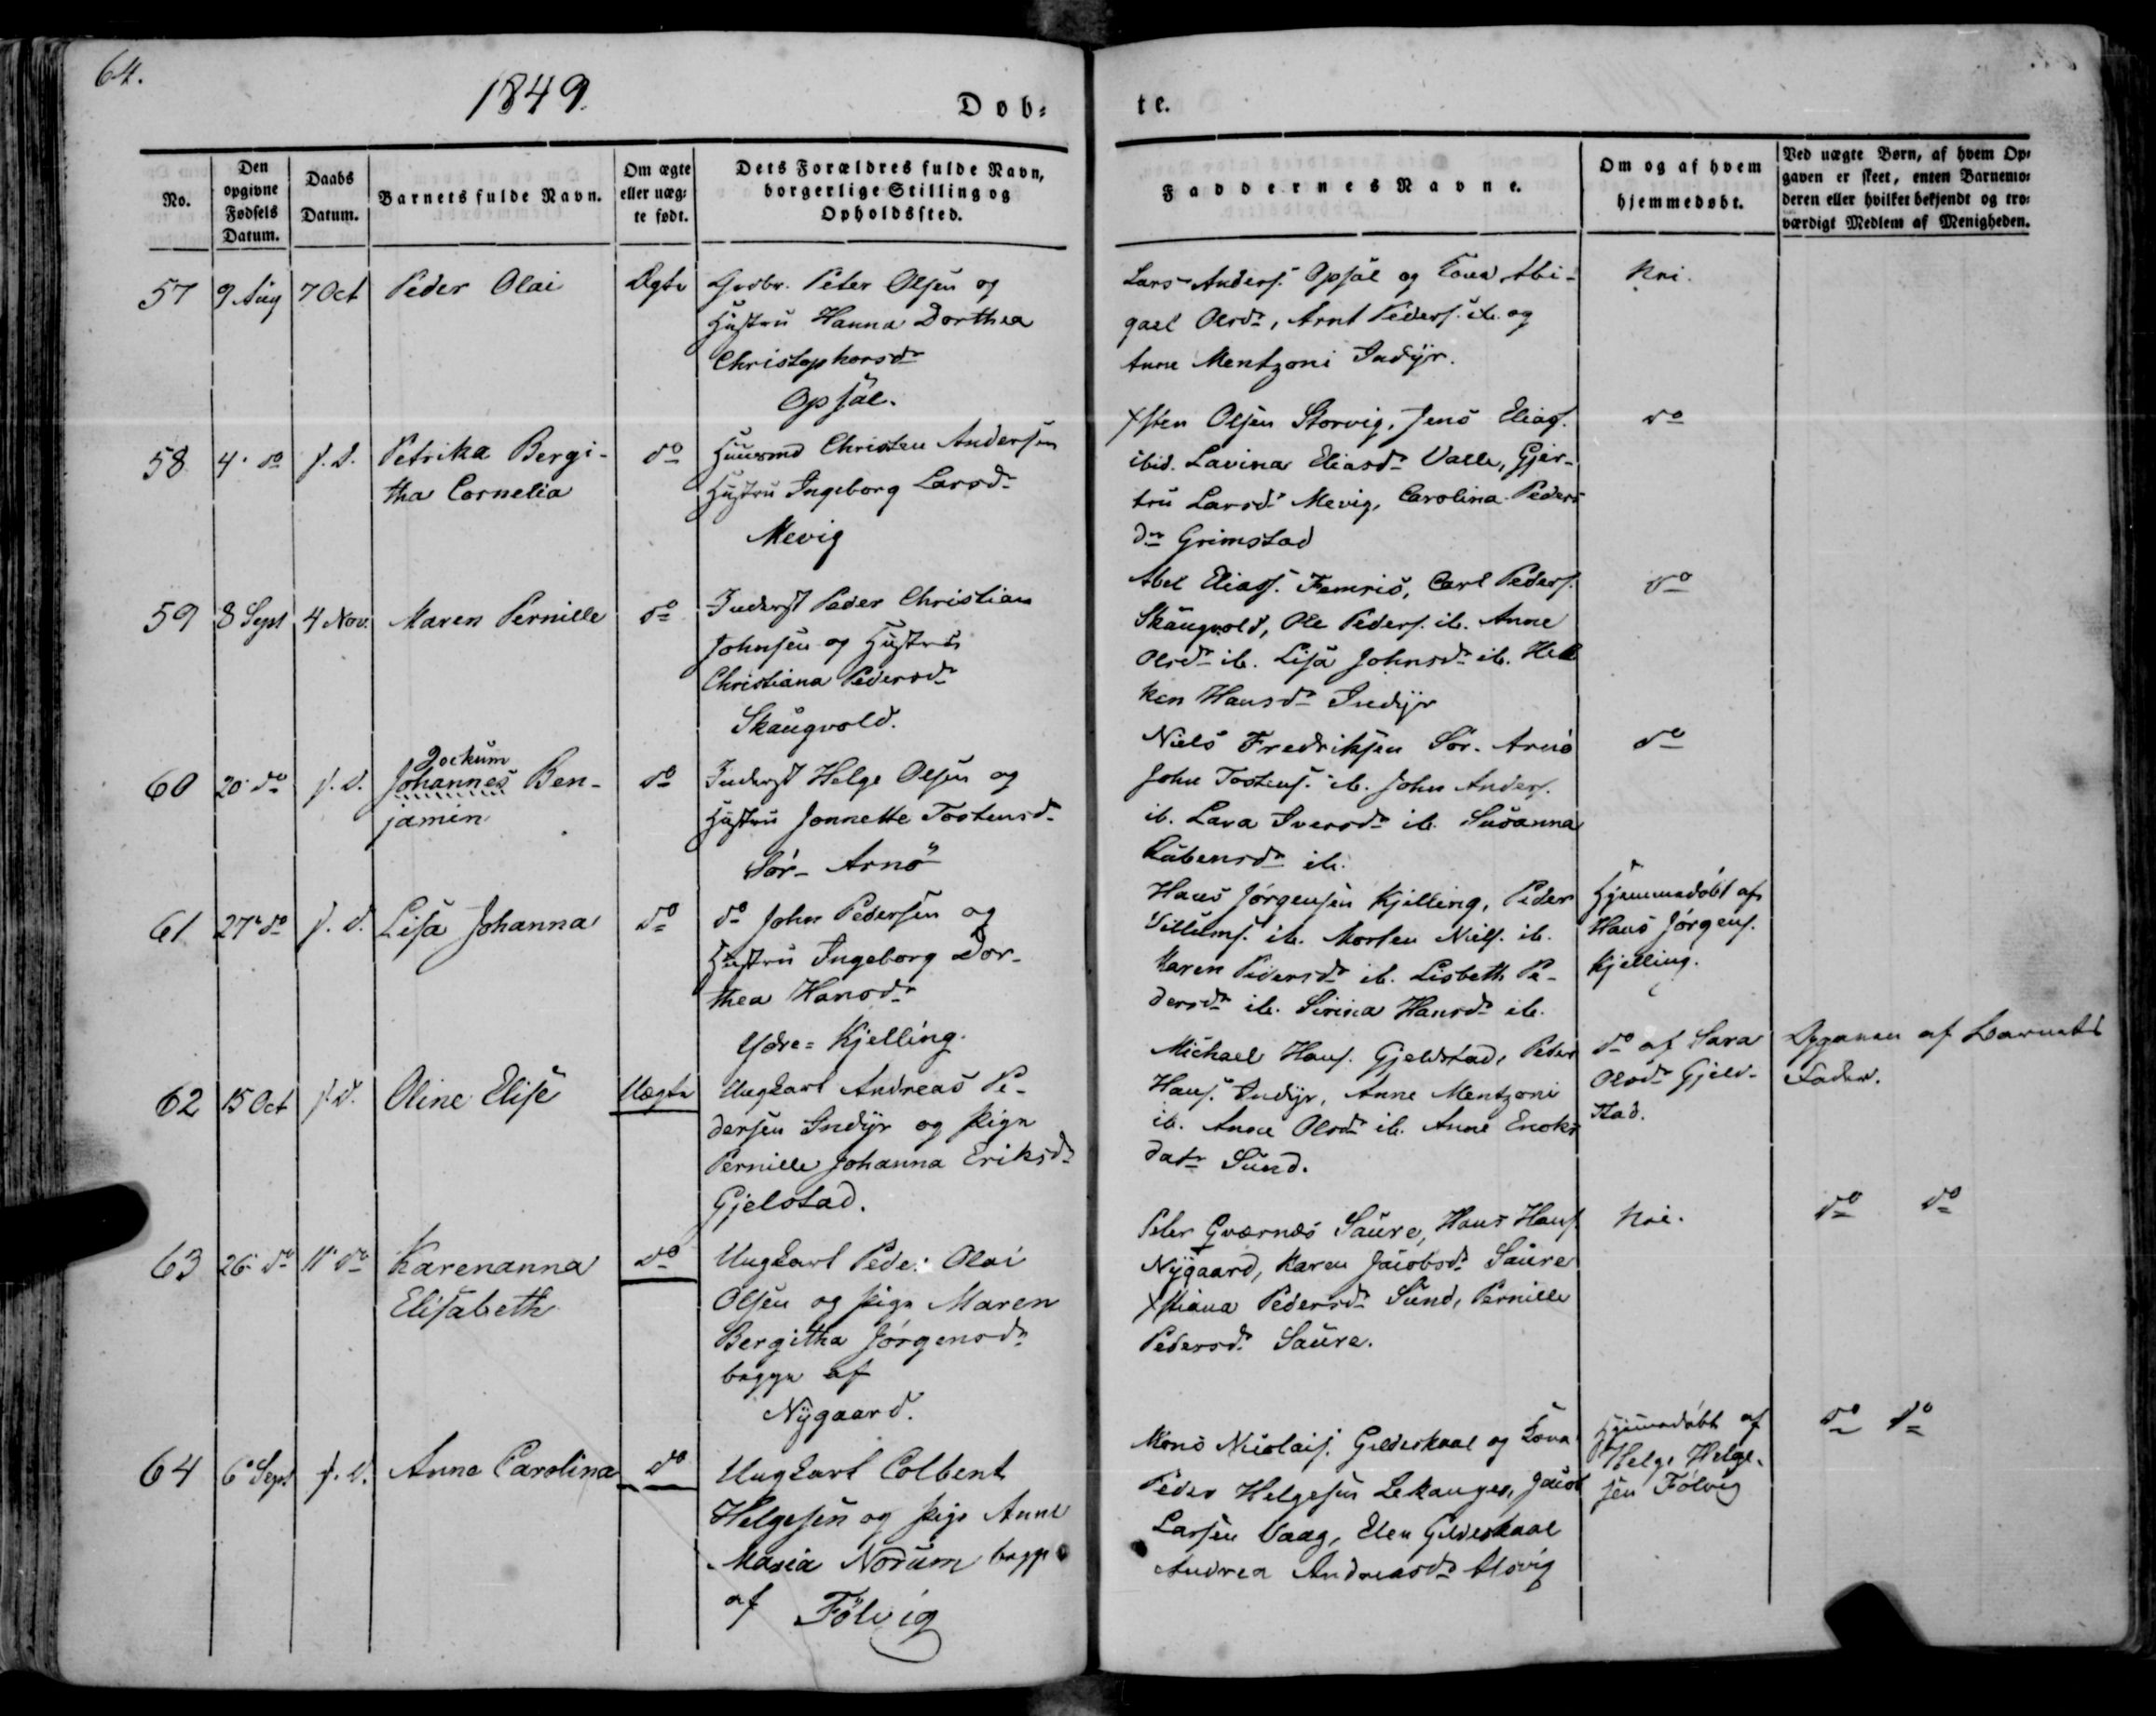 64.
1849.
Døb-
te.
No.
Den opgivne Fødsels Datum.
Daabs Datum.
Barnets fulde Navn.
Om ægte eller uæg- te født.
Dets Forældres fulde Navn, borgerlige Stilling og Opholdssted.
Faddernes Navne.
Om og af hvem hjemmedøbt.
Ved uægte Børn, af hvem Op- gaven er skeet, enten Barnemo- deren eller hvilket bekjendt og tro- værdigt Medlem af Menigheden.
57 9 Aug 7 Oct Peder Olai Ægte Grdbr. Peter Olsen og
Hustru Hanna Dorthea
Christophersdr
Opsal.
Lars Anders. Opsal og Kona Abi-
gael Olsdr, Arnt Peders. ib. og
Anne Mentzoni Indyr.
Nei.
58 4. do s. d. Petrika Bergi-
tha Cornelia
do Huusmd Christen Andersen
Hustru Ingeborg Larsdr
Mevig
Xsten Olsen Storvig, Jens Elias.
ibid. Lavina Eliasdr Valle, Gjer-
tru Larsdr Mevig, Carolina Peders
dr Grimstad
do
59 8 Sept 4 Nov. Maren Pernille do Inderst Peder Christian
Johnsen og Hustru
Christiana Pedersdr
Skaugvold.
Abel Eliass. Femris, Carl Peders.
Skaugvold, Ole Peders. ib. Anne
Olsdr ib. Lisa Johnsdr ib. Hel
ken Hansdr Indyr
do
60 20. do s. d. Jockum
Johannes Ben-
jamin
do Inderst Helge Olsen og
Hustru Jonnette Tostensdr
Sör-Arnö
Niels Fredriksen Sör-Arnö
John Tostens. ib. John Anders.
ib. Lava Iversdr ib. Susanna
Rubensdr ib.
do
61 27. do s. d. Lisa Johanna do do John Pedersen og
Hustru Ingeborg Dor-
thea Hansdr
Ydre-Kjelling.
Hans Jørgensen Kjelling, Peder
Villums. ib. Morten Niels. ib.
Karen Pedersdr ib. Lisbeth Pe-
dersdr ib. Sirina Hansdr ib.
Hjemmedøbt af
Hans Jørgens.
Kjelling.
62 15 Oct s. d. Oline Elise Uægte Ungkarl Andreas Pe-
dersen Indyr og Pige
Pernille Johanna Eriksdr
Gjelstad.
Michael Hans. Gjeldstad, Peder
Hans. Indyr, Anne Mentzoni
ib. Anne Olsdr ib. Anne Enoks
datr Sund.
do af Sara
Olsdr Gjeld-
stad.
Opgaven af Barnets
Fader.
63 26. do 11. do Karenanna
Elisabeth
do Ungkarl Peder Olai
Olsen og Pige Maren
Bergitha Jörgensdr
begge af
Nygaard.
Peter Qværnes Saure, Hans Hans
Nygaard, Karen Jacobsdr Saure
Xstiana Pedersdr Sund, Pernille
Pedersdr Saure.
Nei.
do do
64 6. Sept s. d. Anne Carolina do Ungkarl Colbent
Helgesen og Pige Anne
Maria Nordum begge
af Fölvig
Mons Nicolais. Gildeskaal og Kona
Peder Helgesen Lekanger, Jacob
Larsen Vaag, Elen Gildeskaal
Andrea Andreasdr Alsvig
Hjemmedøbt af
Helge Helge-
sen Fölvig
do do